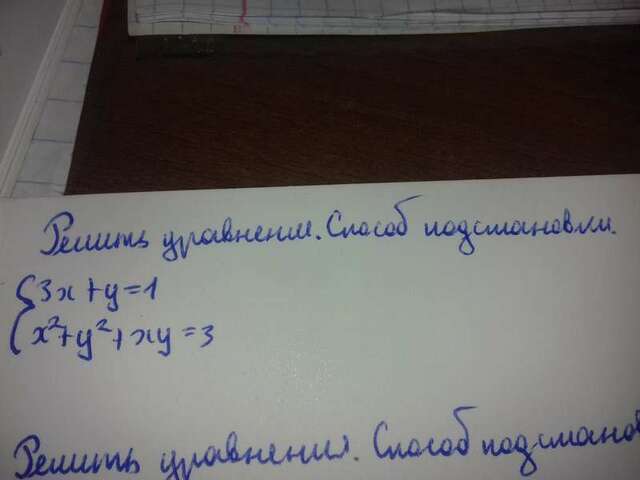 Решить уравнения. Способ подстановки.
3x+y=1
x²+y²+xy=3
Решить уравнения. Способ подстанов